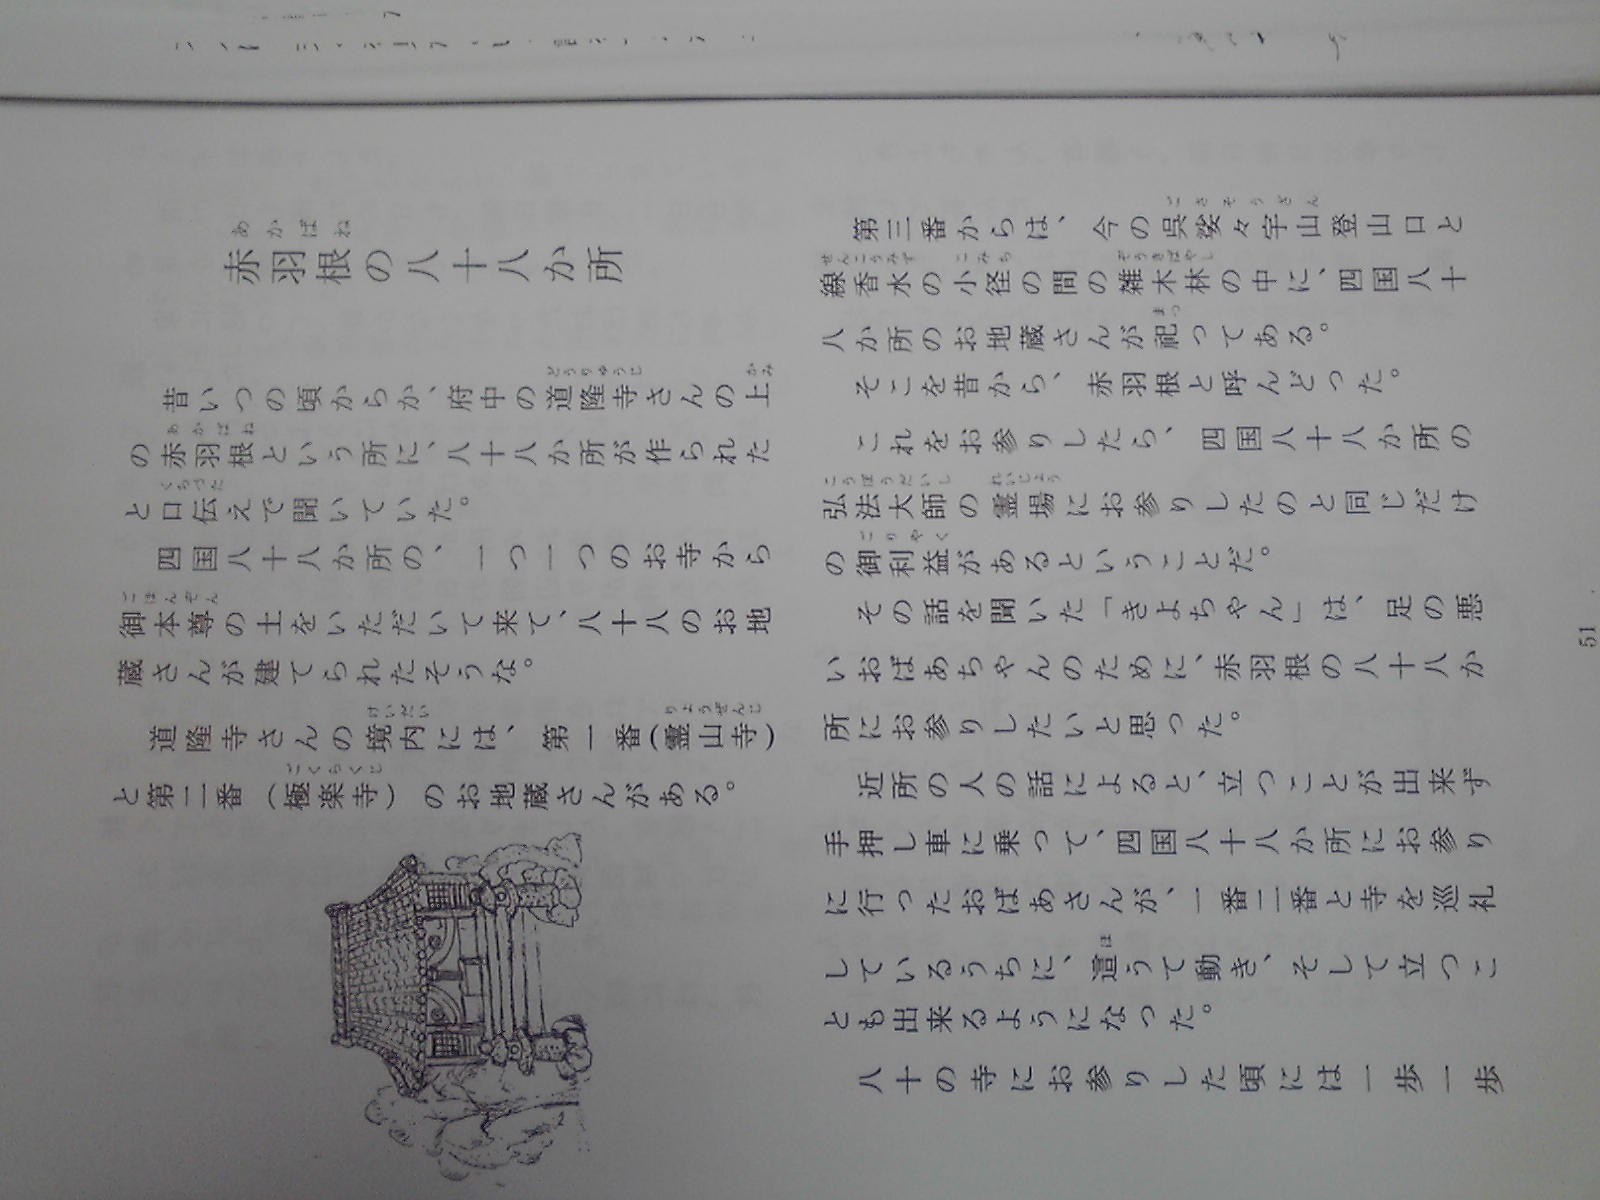 赤羽根の八十八か所
昔いつの頃からか、府中の道隆寺さんの上
の赤羽根という所に、八十八か所が作られた
と口伝えで聞いていた。
四国八十八か所の、一つ一つのお寺から
御本尊の土をいただいて来て、八十八のお地
蔵さんが建てられたそうな。
道隆寺さんの境内には、第一番(霊山寺)
と第二番(極楽寺)のお地蔵さんがある。
第三番からは、今の呉娑々宇山登山口と
線香水の小径の間の雑木林の中に、四国八十
八か所のお地蔵さんが祀ってある。
そこを昔から、赤羽根と呼んどった。
これをお参りしたら、四国八十八か所の
弘法大師の霊場にお参りしたのと同じだけ
の御利益があるということだ。
その話を聞いた「きよちゃん」は、足の悪
いおばあちゃんのために、赤羽根の八十八か
所にお参りしたいと思った。
近所の人の話によると、立つことが出来ず
手押し車に乗って、四国八十八か所にお参り
に行ったおばあさんが、一番二番と寺を巡礼
しているうちに、這うて動き、そして立つこ
とも出来るようになった。
八十の寺にお参りした頃には一歩一歩
51